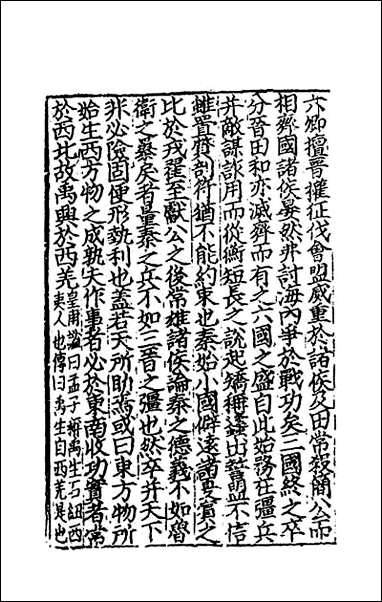 六卿擅晉權征伐會盟威重於諸侯及田常殺簡公而
相齊國諸侯晏然弗討海內爭於戰功矣三國終之卒
分晉田和亦滅齊而有之六國之盛自此始務在彊兵
并敵謀詐用而從衡短長之說起矯稱蠭出誓盟不信
雖置質剖符猶不能約束也秦始小國僻遠諸夏賓之
比於戎翟至獻公之後常雄諸侯論秦之德義不如魯
衛之暴戾者量秦之兵不如三晉之彊也然卒并天下
非必險固便形埶利也蓋若天所助焉或曰東方物所
始生西方物之成孰夫作事者必於東南收功實者常
於西北故禹興於西羌皇甫謐曰孟子稱禹生石紐西夷人也傳曰禹生自西羌是也